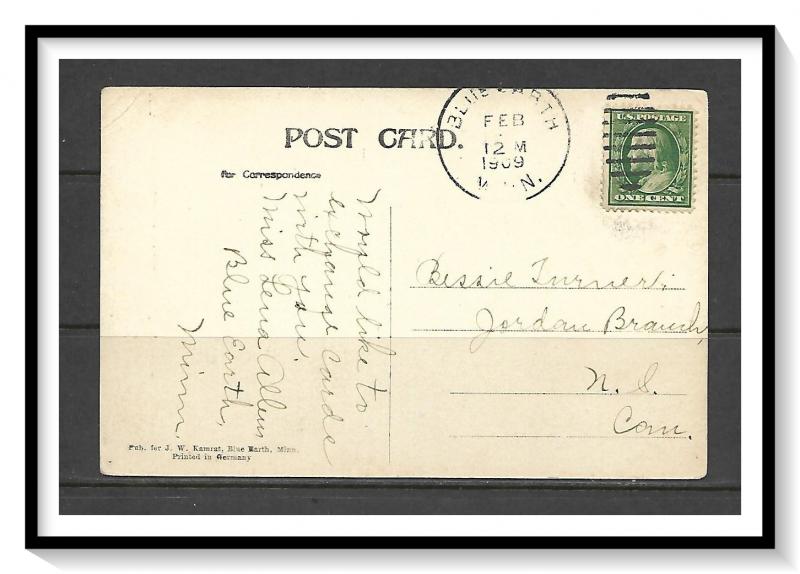 POST CARD.
for Correspondence
BLUE EARTH
FEB
12 M
1909
MINN.
U.S. POSTAGE
ONE CENT
Would like to
exchange cards
with you.
Miss Lena
Blue Earth,
Minn.
Bessie Turner;
Jordan Branch,
N. S.
Can.
Pub. for J. W. Kamrat, Blue Earth, Minn.
Printed in Germany